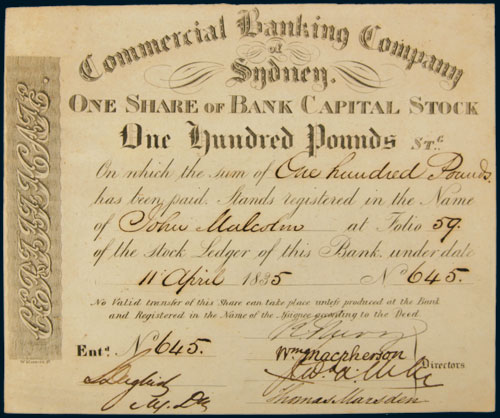 Commercial Banking Company
of
Sydney.
ONE SHARE OF BANK CAPITAL STOCK
One Hundred Pounds St.G
On which the sum of One hundred Pounds
has been paid. Stands registered in the Name
of John Malcolm at Folio 59.
of the stock Ledger of this Bank. under date
11 April 1835 No 645.
No Valid transfer of this Share can take place unless produced at the Bank
and Registered in the Name of the Assignee according to the Deed.
Entd. No 645.
Wm Macpherson
Directors
Thomas Marsden
CERTIFICATE